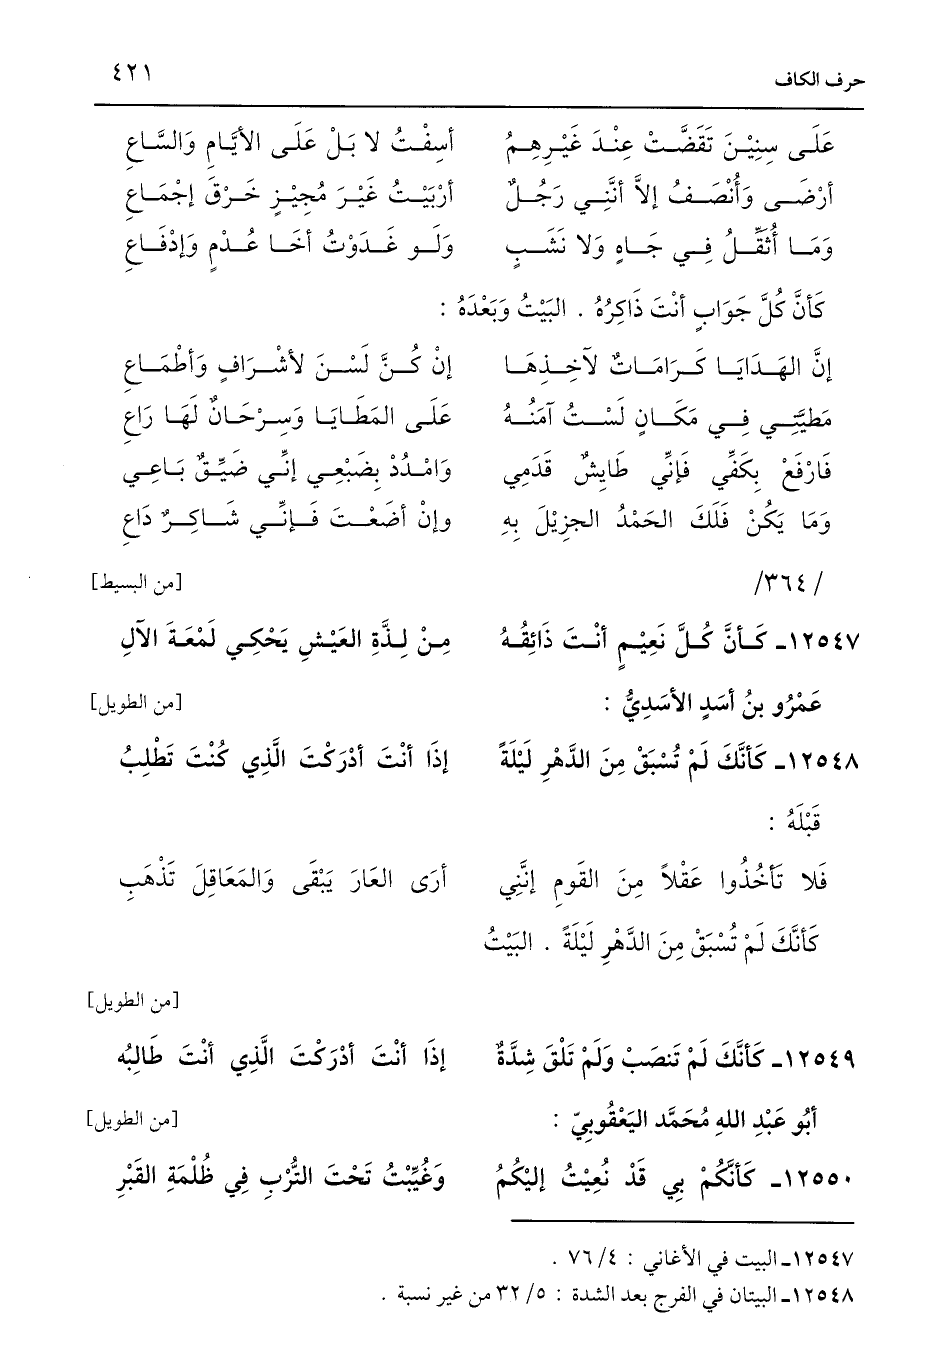 حرف الكاف ٤٢١
عَلَى سِنِيْنَ تَقَضَّتْ عِنْدَ غَيْرِهِمُ أسِفْتُ لا بَلْ عَلَى الأيَّامِ وَالسَّاعِ
أرْضَى وَأُنْصَفُ إلاَّ أنَّنِي رَجُلٌ أرْبَيْتُ غَيْرَ مُجِيْزٍ خَرْقَ إجْمَاعِ
وَمَا أُثَقِّلُ فِي جَاهٍ وَلا نَشَبٍ وَلَو غَدَوْتُ أخَا عُدْمٍ وَإدْفَاعِ
كَأنَّ كُلَّ جَوَابٍ أنْتَ ذَاكِرُهُ . البَيْتُ وَبَعْدَهُ :
إنَّ الهَدَايَا كَرَامَاتٌ لآخِذِهَا إنْ كُنَّ لَسْنَ لأشْرَافٍ وَأطْمَاعِ
مَطِيَّتِي فِي مَكَانٍ لَسْتُ آمَنُهُ عَلَى المَطَايَا وَسِرْحَانٌ لَهَا رَاعِ
فَارْفَعْ بِكَفِّي فَإنِّي طَايشٌ قَدَمِي وَامْدُدْ بِضَبْعِي إنِّي ضَيِّقٌ بَاعِي
وَمَا يَكُنْ فَلَكَ الحَمْدُ الجزِيْلَ بِهِ وإنْ أضَعْتَ فَإنِّي شَاكِرٌ دَاعِ
/ ٣٦٤/ [من البسيط]
١٢٥٤٧ـ كَأنَّ كُلَّ نَعِيْمٍ أنْتَ ذَائِقُهُ مِنْ لِذَّةِ العَيْشِ يَحْكِي لَمْعَةَ الآلِ
عَمْرُو بنُ أسَدٍ الأسَدِيُّ : [من الطويل]
١٢٥٤٨ـ كَأنَّكَ لَمْ تُسْبَقْ مِنَ الدَّهْرِ لَيْلَةً إذَا أنْتَ أدْرَكْتَ الَّذِي كُنْتَ تَطْلِبُ
قَبْلَهُ :
فَلا تَأخُذُوا عَقْلاً مِنَ القَومِ إنَّنِي أرَى العَارَ يَبْقَى وَالمَعَاقِلَ تَذْهَبِ
كَأنَّكَ لَمْ تُسْبَقْ مِنَ الدَّهْرِ لَيْلَةً . البَيْتُ
[من الطويل]
١٢٥٤٩ـ كَأنَّكَ لَمْ تَنصَبْ وَلَمْ تَلْقَ شِدَّةٌ إذَا أنْتَ أدْرَكْتَ الَّذِي أنْتَ طَالِبُه
أبُو عَبْدِ اللهِ مُحَمَّد اليَعْقُوبِيّ : [من الطويل]
١٢٥٥٠ـ كَأنَّكُمْ بِي قَدْ نُعِيْتُ إليْكُمُ وَغُيِّبْتُ تَحْتَ التُّرْبِ فِي ظُلْمَةِ القَبْرِ
١٢٥٤٧ـ البيت في الأغاني : ٤/ ٧٦ .
١٢٥٤٨ـ البيتان في الفرج بعد الشدة : ٥/ ٣٢ من غير نسبة .